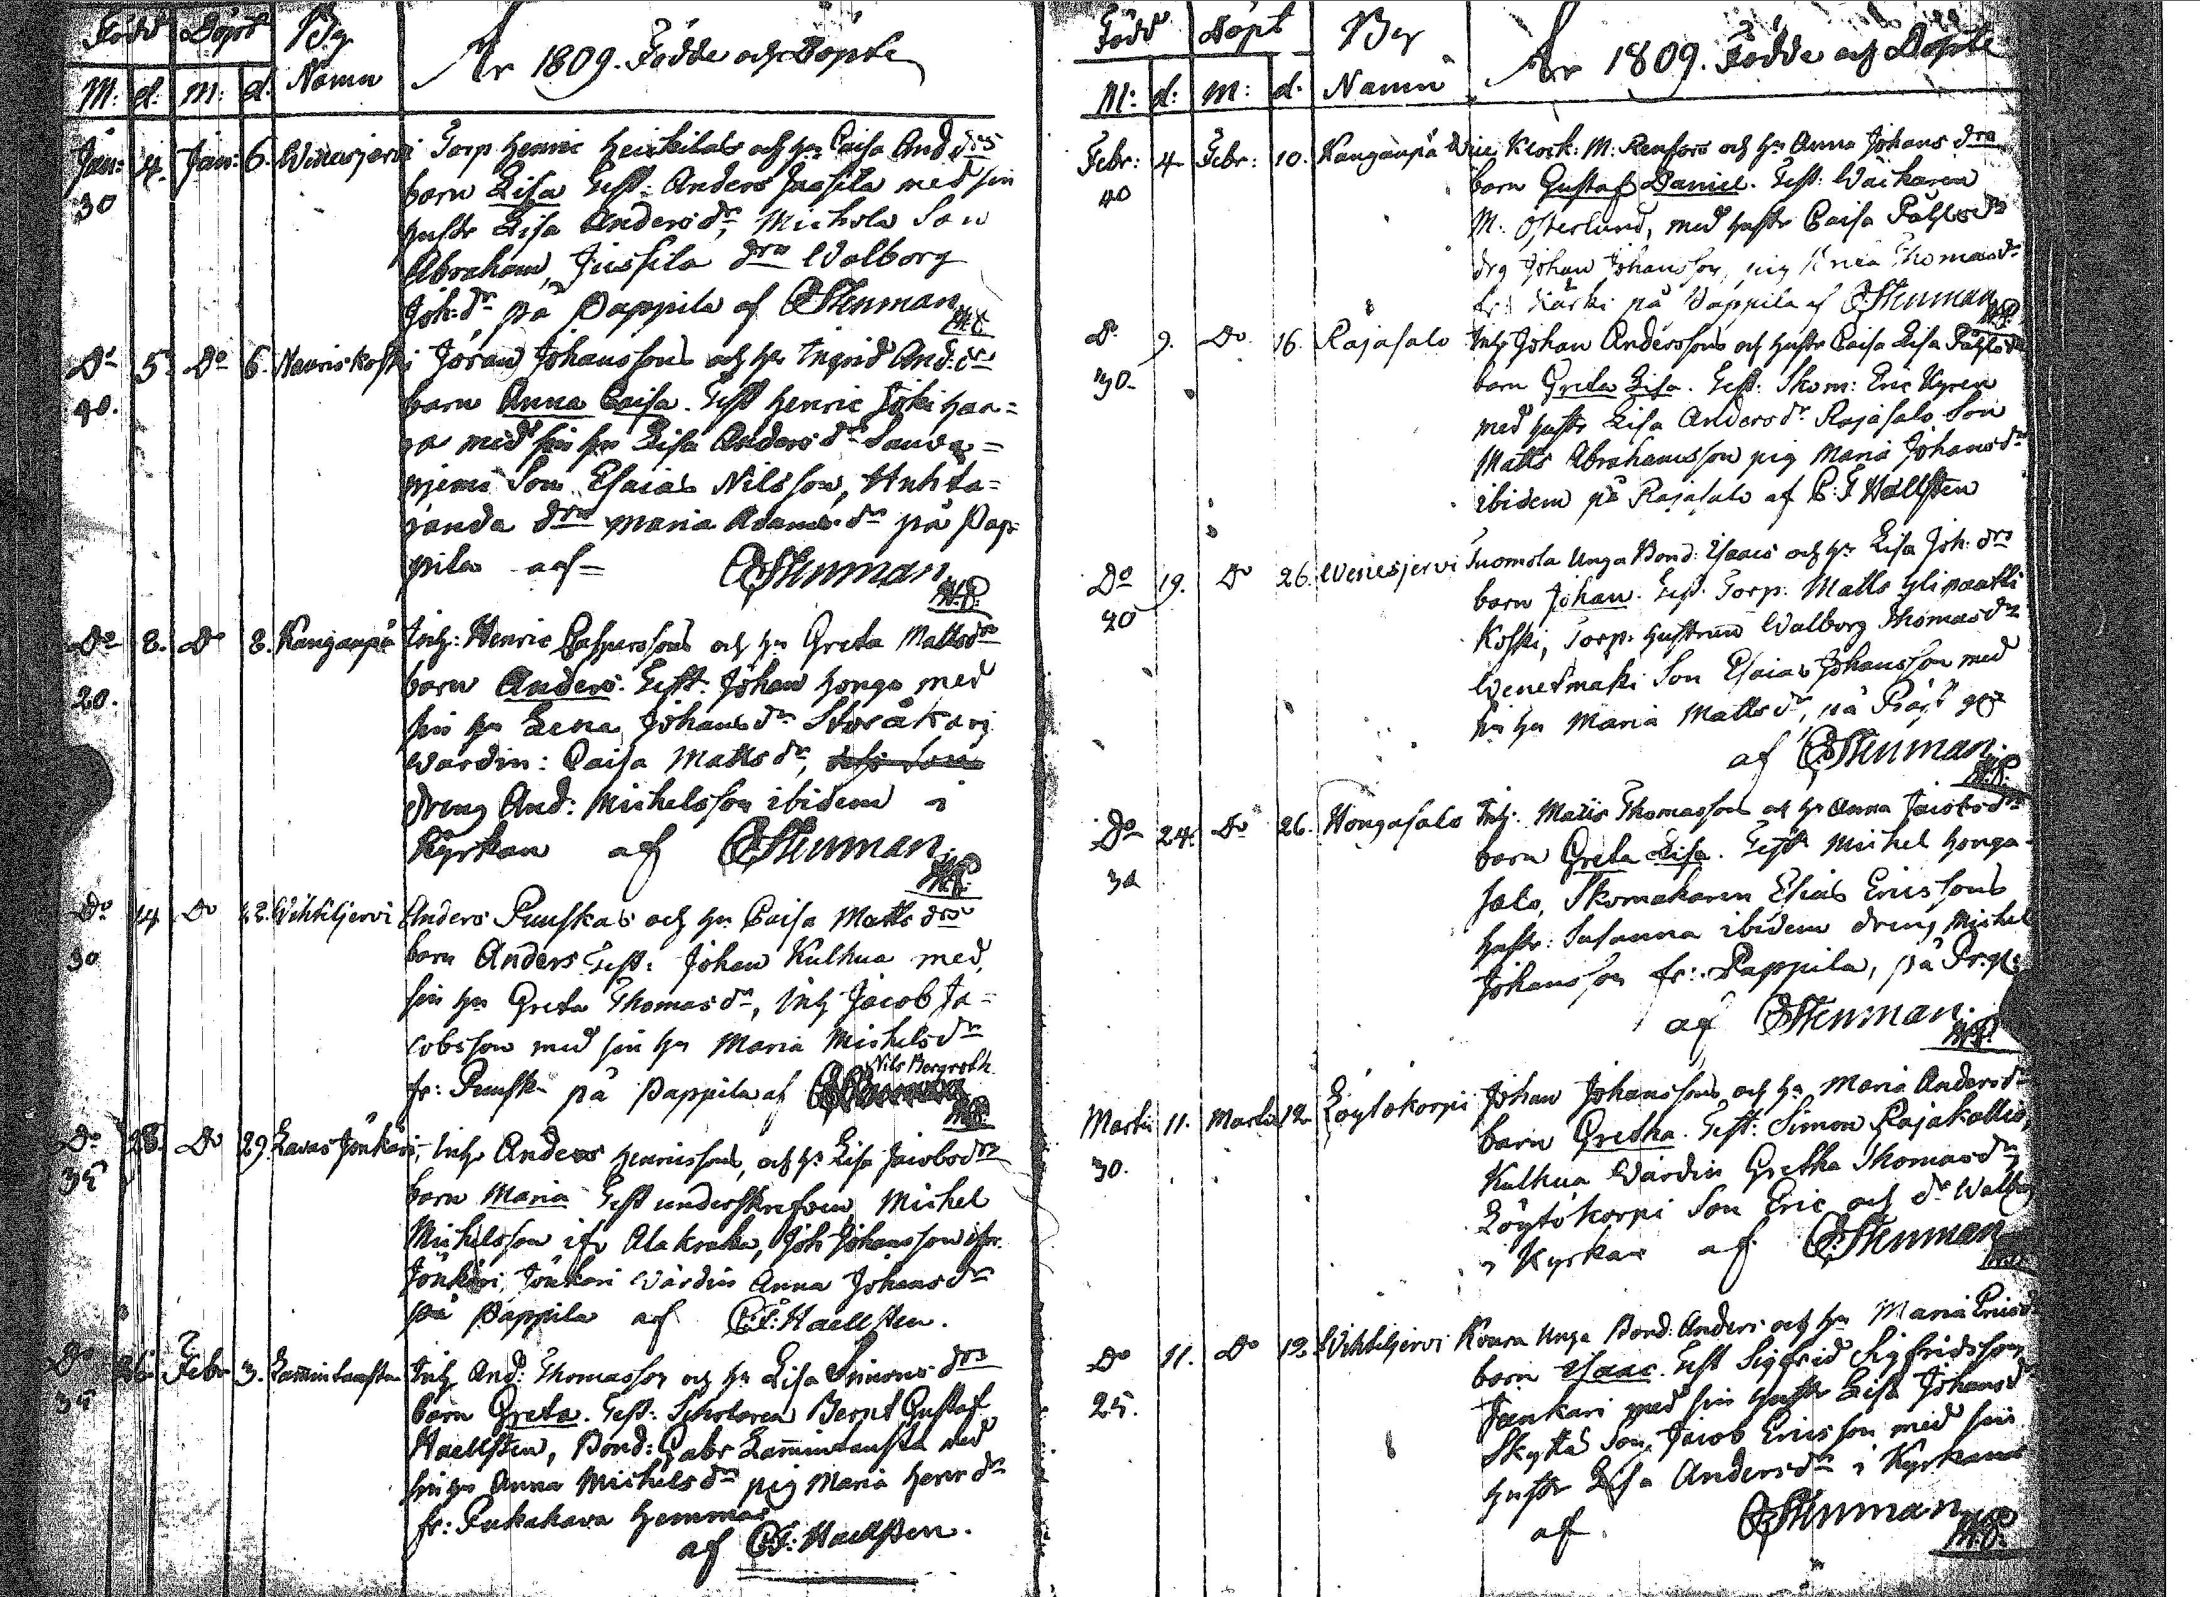 Född Döpt By
M: d: M: d: Namn
År 1809. Födde och Döpte
Jan: 4. Jan: 6. Wenesjervi Torp Henric Heikkilas och hu Caisa And drs
30 barn Lisa Test: Anders Jaasila med sin
hustr Lisa Andersdr, Michola Son
Abraham, Jussila dra Walborg
Joh:dr, på Pappila af C Stenman
Do 5. Do 6. Nauriskoski Jöran Johanssons och hu Ingrid And:drs
40. barn Anna Caisa. Test Henric Jöki haa=
ra med sin hu Lisa Andersdr Sauva=
niemi Son Esaias Nilsson, Huhta=
randa dra Maria Adamsdr på Pap=
pila af= C Stenman
Do 8. Do 8. Kanganpä Inh: Henric Caspersons och hu Greta Mattsdrs
20. barn Anders. Test. Johan Honga med
sin hu Lena Johansdr Storåkari
Wärdin: Caisa Mattsdr,
dreng And: Michelsson ibidem i
Kyrkan af C Stenman
Do 14 Do 22. Wihteljervi Anders Puuskas och hu Caisa Matts drs
30 barn Anders Test: Johan Kulhua med
sin hu Greta Thomasdr, Inh Jacob Ja=
cobsson med sin hu Maria Michelsdr
Nils Bergroth
fr: Puuska på Pappila af
Do 28. Do 29. Lavas Jonkari, Inh Anders Henricssons, och hu Lisa Jacobsdrs
35 barn Maria Test underskrefven Michel
Michelsson ifr Alakraka, Joh Johansson ifr.
Jonkari, Jonkari Wärdin Anna Johansdr
på Pappila af C:F: Haellsten.
Do Febr 3. Lammintausta Inh And: Thomasson och hu Lisa Simons drs
35 barn Greta. Test: Scholaren Bernt Gustaf
Haellsten, Bond: Gabr Lammintausta med
sin hu Anna Michelsdr pig Maria Henrdr
fr: Pukakava hemma
af C:F: Haellsten.
Född Döpt By
M: d: M: d. Namn
År 1809. Födde och Döpte
Febr: 4 Febr: 10. Kanganpä Wice Klock: M: Renfors och hu Anna Johans dra
40 barn Gustaf Daniel. Test: Wäikaren
M: Österlund, med hustr Caisa Påhlsdr
drg Johan Johansson, pig Thomasdr
fr: Kärki på Pappila af C Stenman
Do 9. Do 16. Rajasalo Inh Johan Anderssons och hustr Caisa Lisa Påhlsdr
30. barn Greta Lisa. Test: Skom: Eric Kyren
med hustr Lisa Andersdr Rajasalo Son
Matts Abrahamsson pig Maria Johansdr
ibidem på Rajasalo af C:F Hallsten
Do 19. Do 26. Wenesjervi Tuomola Unga Bond: Esaacs och hu Lisa Joh:drs
40 barn Johan. Test. Torp: Matts Ylipaatti
Koski, Torp: hustrun Walborg Thomasdr
Wenetmäki Son Esaias Johansson med
sin hu Maria Mattsdr, på Präst gd
af C Stenman.
Do 24. Do 26. Hongasalo Inh: Matts Thomassons och hu Anna Jacobsdr
30 barn Greta Lisa. Test Michel Honga=
salo, Skomakaren Elias Ericssons
hustr: Susanna ibidem dreng Michel
Johansson fr: Pappila, på Pr:gd:
af C Stenman.
Martii 11. Martii 12. Löytökorpi Johan Johanssons och hu Maria Andersdr
30. barn Gretha. Test: Simon Rajakallio,
Kulhua Wärdin Gretha Thomasdr
Löytökorpi Son Eric och dr Walborg
i Kyrkan af C Stenman
Do 11. Do 12. Wihteljervi Koura Unga Bond: Anders och hu Maria Ericsdr
25. barn Isaac. Test Sigfrid Sigfridsson
Jankari med sin hustr Lisa Johansdr
Skyttä Son Jacob Ericsson med sin
hustr Lisa Andersdr i Kyrkan
af C Stenman